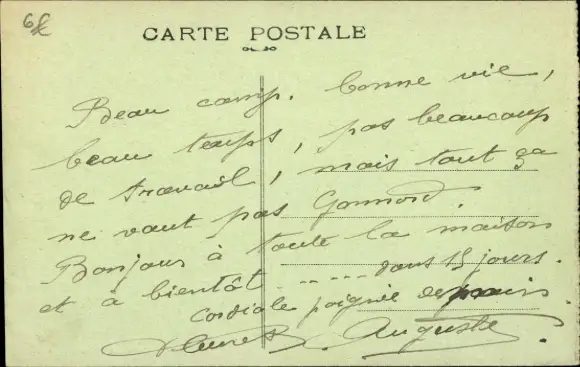 6€
CARTE POSTALE
Beau camp. bonne vie,
beau temps, pas beaucoup
de travail, mais tout ça
ne vaut pas
Bonjour à toute la maison
et à bientôt ..---. dans 15 jours.
Cordiale poignée de
Auguste.